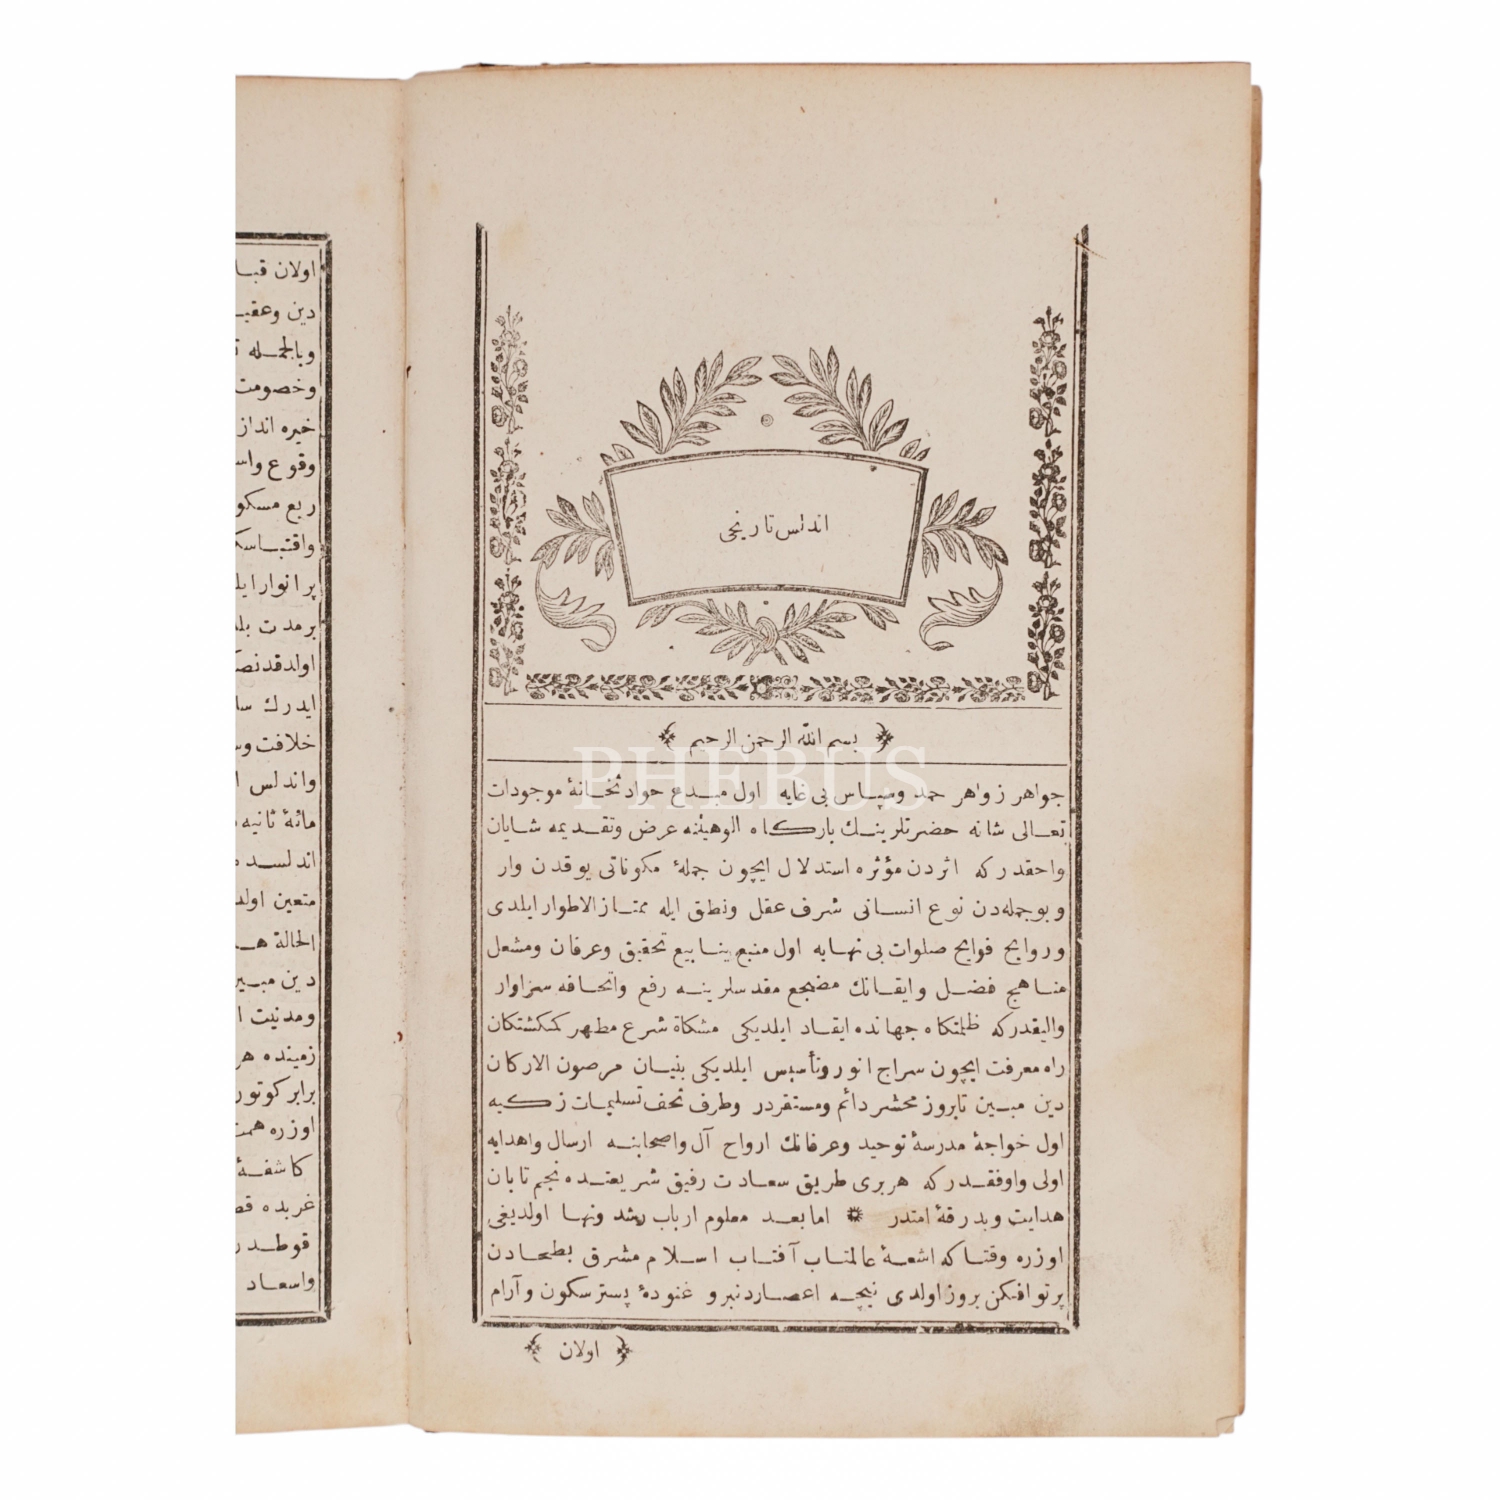 اندلس تاريخى
بسم الله الرحمن الرحيم
جواهر زواهر حمد وسپاس بى غايه اول مبدع حوادثخانهٔ موجودات
تعالى شانه حضرتلرينك باركاه الوهيتنه عرض وتقديمه شايان
واحقدركه اثردن مؤثره استدلال ايچون جملهٔ مكوناتى يوقدن وار
وبوجمله‌دن نوع انسانى شرف عقل ونطق ايله ممتازالاطوار ايلدى
وروايح فوايح صلوات بى نهايه اول منبع ينابيع تحقيق وعرفان ومشعل
مناهج فضل وايقانك مضجع مقدسلرينه رفع واتحافه سزاوار
واليقدركه ظلمتكاه جهانده ايقاد ايلديكى مشكاة شرع مطهر كمكشتكان
راه معرفت ايچون سراج انور وتأسيس ايلديكى بنيان مرصون الاركان
دين مبين تابروز محشر دائم ومستقردر وطرف تحف تسليمات زكيه
اول خواجهٔ مدرسهٔ توحيد وعرفانك ارواح آل واصحابنه ارسال واهدايه
اولى واوفقدركه هربرى طريق سعادت رفيق شريعتده نجم تابان
هدايت وبدرقهٔ امتدر امابعد معلوم ارباب رشد ونها اولديغى
اوزره وقتاكه اشعهٔ عالمتاب آفتاب اسلام مشرق بطحادن
پرتو افكن بروز اولدى نيچه اعصاردنبرو غنودهٔ پستر سكون وآرام
اولان
اولان
دين
وبالجمله
وخصومت
خيره انداز
وقوع
ربع
پر انوار
برمدت
ايدرك
خلافت
واندلس
مائهٔ ثانيه
متعين
الحالة
دين
ومدنيت
زمينده
برابر
اوزره
كاشفهٔ
غربده
واسعاد
PHEBUS